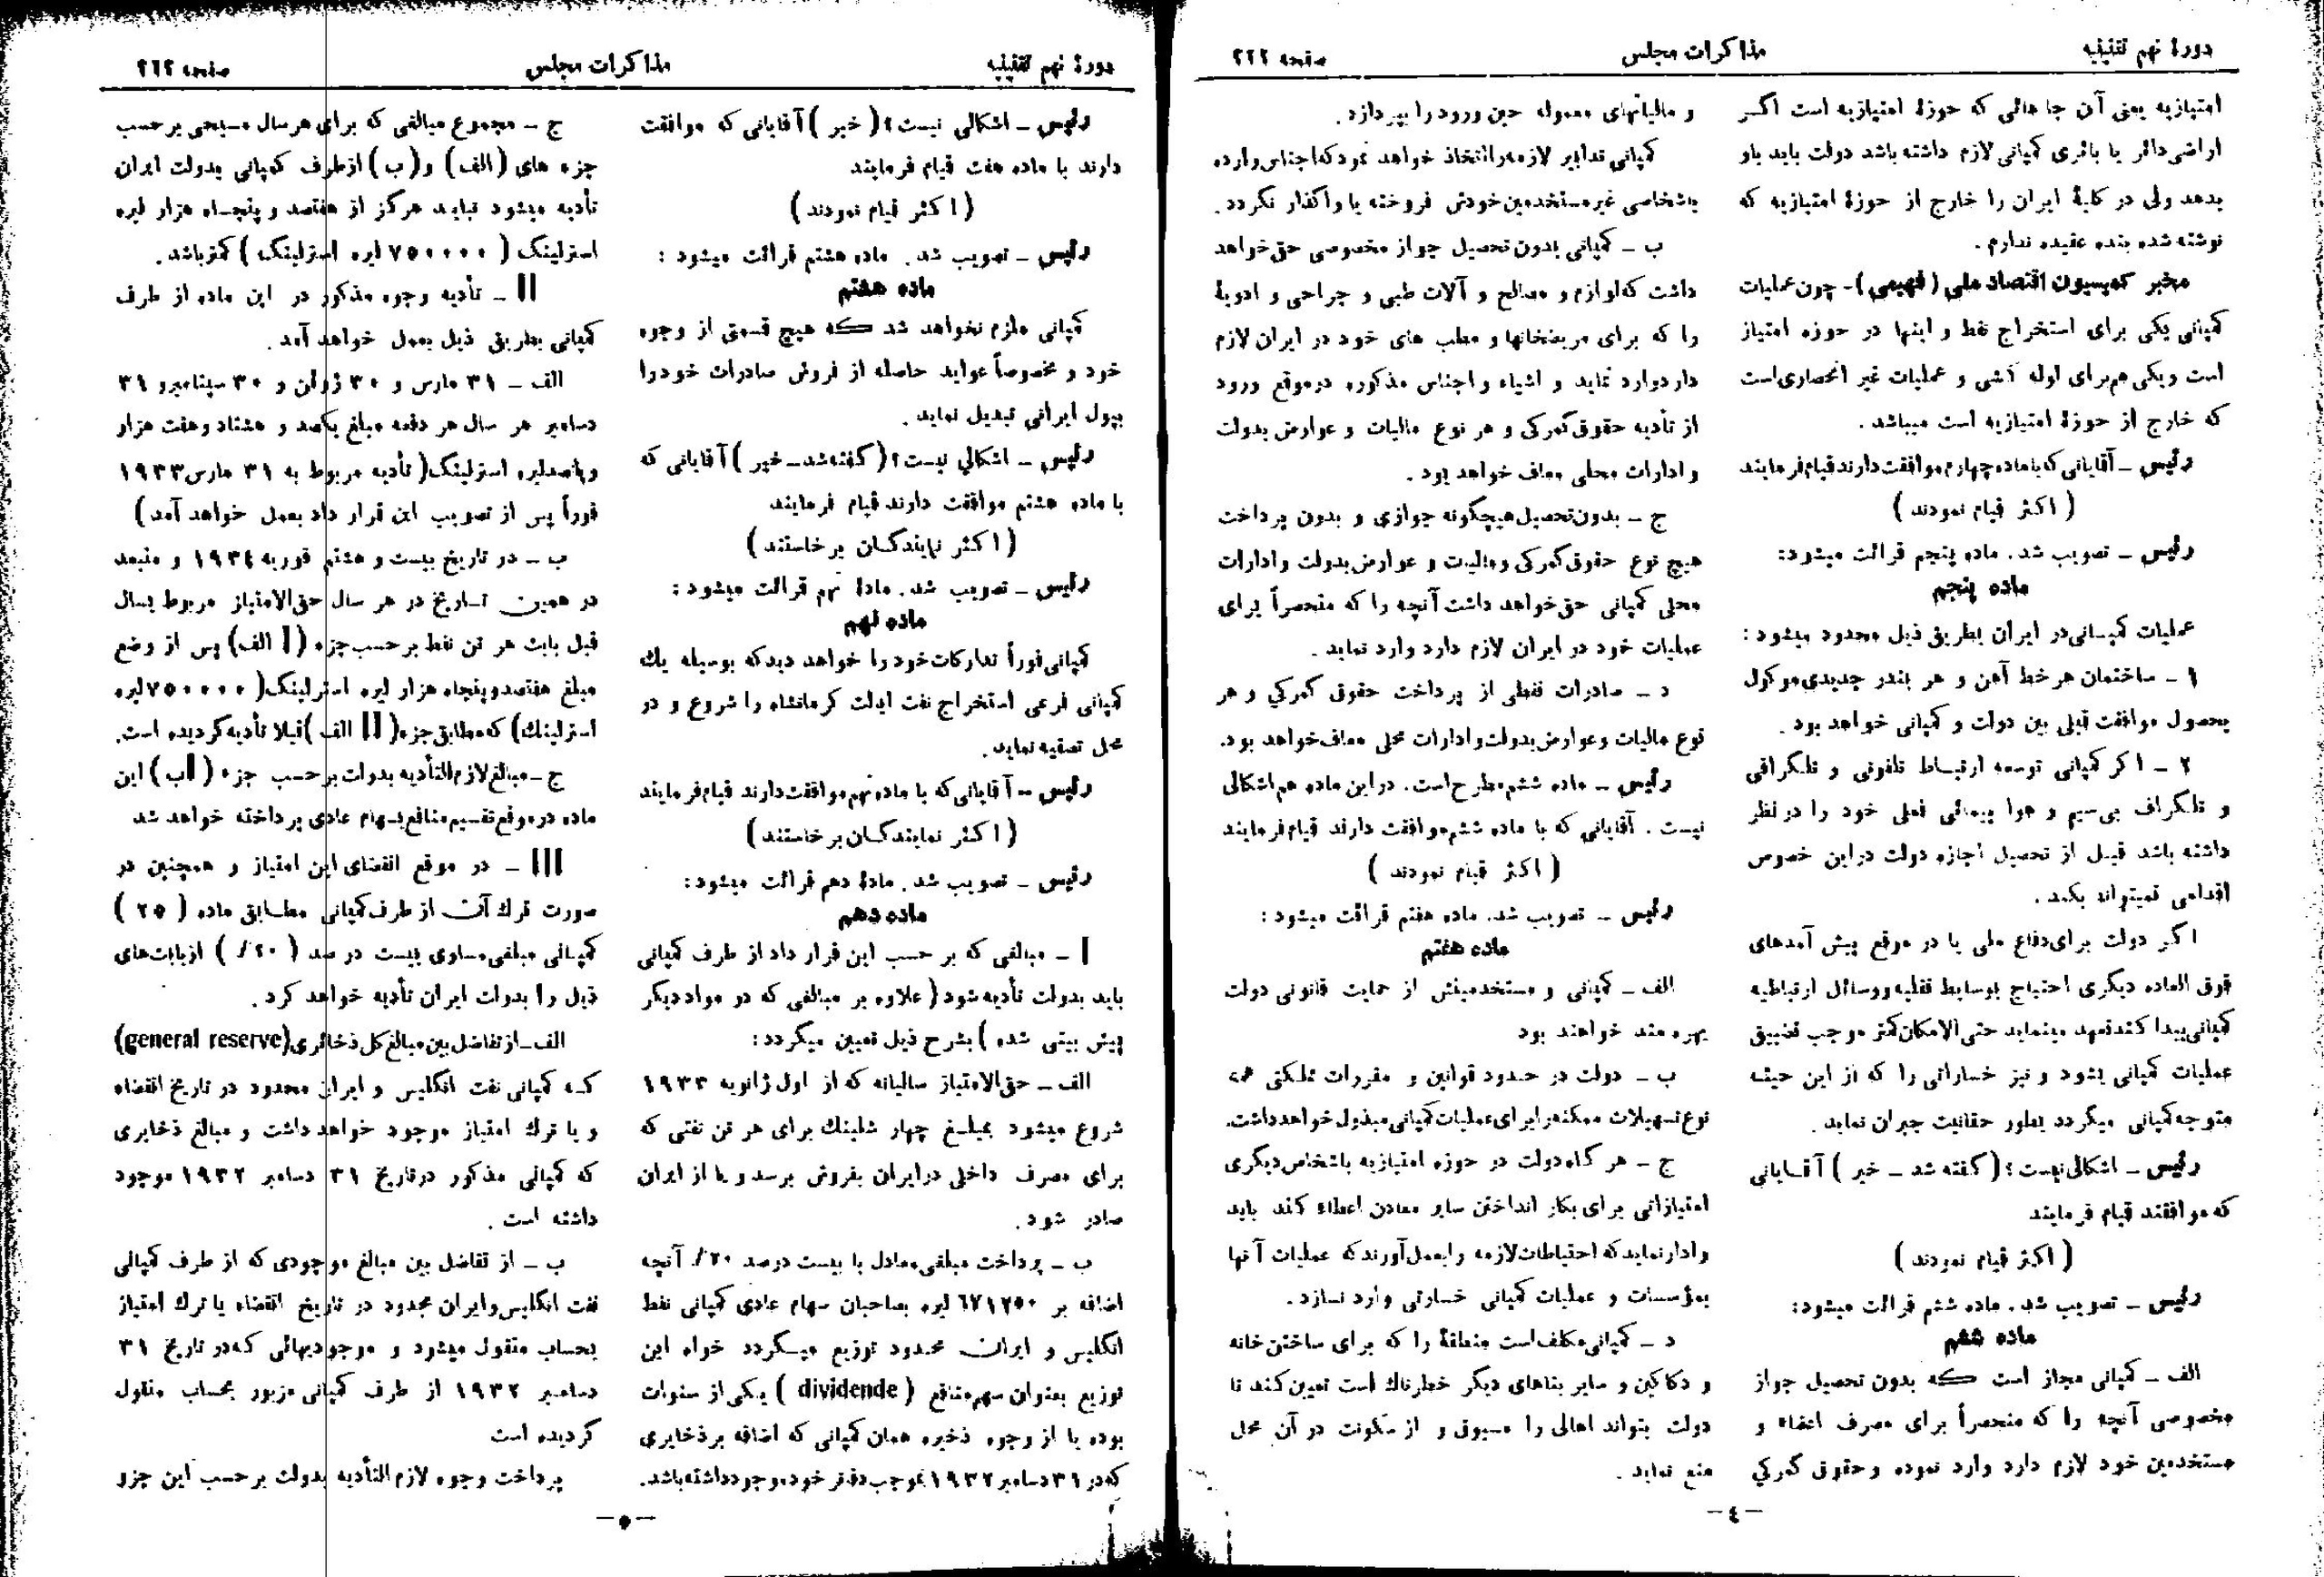 دورهٔ نهم تقنینیه
مذاکرات مجلس
صفحه ۲۲۲
امتیازیه یعنی آن جاهائی که حوزهٔ امتیازیه است اگر
اراضی دائر یا بائری کمپانی لازم داشته باشد دولت باید باو
بدهد ولی در کلیهٔ ایران را خارج از حوزهٔ امتیازیه که
نوشته شده بنده عقیده ندارم .
مخبر کمیسیون اقتصاد ملی ( فهیمی ) - چون عملیات
کمپانی یکی برای استخراج نفط و اینها در حوزه امتیاز
است و یکی هم برای لوله کشی و عملیات غیر انحصاری است
که خارج از حوزهٔ امتیازیه است میباشد .
رئیس – آقایانی که با ماده چهارم موافقت دارند قیام فرمایند
( اکثر قیام نمودند )
رئیس – تصویب شد . ماده پنجم قرائت میشود :
ماده پنجم
عملیات کمپانی در ایران بطریق ذیل محدود میشود :
۱ – ساختمان هر خط آهن و هر بندر جدیدی موکول
بحصول موافقت قبلی بین دولت و کمپانی خواهد بود .
۲ – اگر کمپانی توسعه ارتباط تلفونی و تلگرافی
و تلگراف بی‌سیم و هوا پیمائی فعلی خود را در نظر
داشته باشد قبل از تحصیل اجازه دولت در این خصوص
اقدامی نمیتواند بکند .
اگر دولت برای دفاع ملی یا در موقع پیش آمدهای
فوق العاده دیگری احتیاج بوسایط نقلیه و وسائل ارتباطیه
کمپانی پیدا کند تعهد مینماید حتی الامکان کمتر موجب تضییق
عملیات کمپانی بشود و نیز خساراتی را که از این حیث
متوجه کمپانی میگردد بطور حقانیت جبران نماید .
رئیس – اشکالی نیست ؟ ( گفته شد – خیر ) آقایانی
که موافقند قیام فرمایند
( اکثر قیام نمودند )
رئیس – تصویب شد . ماده ششم قرائت میشود :
ماده ششم
الف – کمپانی مجاز است که بدون تحصیل جواز
مخصوصی آنچه را که منحصراً برای مصرف اعضاء و
مستخدمین خود لازم دارد وارد نموده و حقوق گمرکی
و مالیاتهای معموله حین ورود را بپردازد .
کمپانی تدابیر لازمه را اتخاذ خواهد نمود که اجناس وارده
باشخاصی غیر مستخدمین خودش فروخته یا واگذار نگردد .
ب – کمپانی بدون تحصیل جواز مخصوصی حق خواهد
داشت که لوازم و مصالح و آلات طبی و جراحی و ادویهٔ
را که برای مریضخانها و مطب های خود در ایران لازم
دارد وارد نماید و اشیاء و اجناس مذکوره در موقع ورود
از تأدیه حقوق گمرکی و هر نوع مالیات و عوارض بدولت
و ادارات محلی معاف خواهد بود .
ج – بدون تحصیل هیچگونه جوازی و بدون پرداخت
هیچ نوع حقوق گمرکی و مالیات و عوارض بدولت و ادارات
محلی کمپانی حق خواهد داشت آنچه را که منحصراً برای
عملیات خود در ایران لازم دارد وارد نماید .
د – صادرات نفطی از پرداخت حقوق گمرکی و هر
نوع مالیات و عوارض بدولت و ادارات محلی معاف خواهد بود .
رئیس – ماده ششم مطرح است . در این ماده هم اشکالی
نیست . آقایانی که با ماده ششم موافقت دارند قیام فرمایند
( اکثر قیام نمودند )
رئیس – تصویب شد . ماده هفتم قرائت میشود :
ماده هفتم
الف – کمپانی و مستخدمینش از حمایت قانونی دولت
بهره مند خواهند بود
ب – دولت در حدود قوانین و مقررات مملکتی همه
نوع تسهیلات ممکنه را برای عملیات کمپانی مبذول خواهد داشت .
ج – هر گاه دولت در حوزه امتیازیه باشخاص دیگری
امتیازاتی برای بکار انداختن سایر معادن اعطاء کند باید
وادار نماید که احتیاطات لازمه را بعمل آورند که عملیات آنها
بمؤسسات و عملیات کمپانی خسارتی وارد نسازد .
د – کمپانی مکلف است منطقهٔ را که برای ساختن خانه
و دکاکین و سایر بناهای دیگر خطرناك است تعیین کند تا
دولت بتواند اهالی را مسبوق و از سکونت در آن محل
منع نماید .
– ٤ –
دورهٔ نهم تقنینیه
مذاکرات مجلس
صفحه ۲۲۳
رئیس – اشکالی نیست ؟ ( خیر ) آقایانی که موافقت
دارند با ماده هفت قیام فرمایند
( اکثر قیام نمودند )
رئیس – تصویب شد . ماده هشتم قرائت میشود :
ماده هشتم
کمپانی ملزم نخواهد شد که هیچ قسمتی از وجوه
خود و مخصوصاً عواید حاصله از فروش صادرات خود را
بپول ایرانی تبدیل نماید .
رئیس – اشکالی نیست ؟ ( گفته شد – خیر ) آقایانی که
با ماده هشتم موافقت دارند قیام فرمایند
( اکثر نمایندگان برخاستند )
رئیس – تصویب شد . مادهٔ نهم قرائت میشود :
ماده نهم
کمپانی فوراً تدارکات خود را خواهد دید که بوسیله یك
کمپانی فرعی استخراج نفت ایالت کرمانشاه را شروع و در
محل تصفیه نماید .
رئیس – آقایانی که با ماده نهم موافقت دارند قیام فرمایند
( اکثر نمایندگان برخاستند )
رئیس – تصویب شد . مادهٔ دهم قرائت میشود :
ماده دهم
I – مبالغی که بر حسب این قرار داد از طرف کمپانی
باید بدولت تأدیه شود ( علاوه بر مبالغی که در مواد دیگر
پیش بینی شده ) بشرح ذیل تعیین میگردد :
الف – حق‌الامتیاز سالیانه که از اول ژانویه ۱۹۳۳
شروع میشود بمبلغ چهار شلینك برای هر تن نفتی که
برای مصرف داخلی در ایران بفروش برسد و یا از ایران
صادر شود .
ب – پرداخت مبلغی معادل با بیست درصد ۲۰٪ آنچه
اضافه بر ٦۷۱۲۵۰ لیره بصاحبان سهام عادی کمپانی نفط
انگلیس و ایران محدود توزیع میگردد خواه این
توزیع بعنوان سهم منافع ( dividende ) یکی از سنوات
بوده یا از وجوه ذخیره همان کمپانی که اضافه بر ذخایری
که در ۳۱ دسامبر ۱۹۳۲ بموجب دفتر خود موجود داشته باشد .
ج – مجموع مبالغی که برای هر سال مسیحی برحسب
جزء های ( الف ) و ( ب ) از طرف کمپانی بدولت ایران
تأدیه میشود نباید هرگز از هفتصد و پنجاه هزار لیره
استرلینگ ( ۷۵۰۰۰۰ لیره استرلینگ ) کمتر باشد .
II – تأدیه وجوه مذکور در این ماده از طرف
کمپانی بطریق ذیل بعمل خواهد آمد .
الف – ۳۱ مارس و ۳۰ ژوئن و ۳۰ سپتامبر و ۳۱
دسامبر هر سال هر دفعه مبلغ یکصد و هشتاد و هفت هزار
و پانصد لیره استرلینگ ( تأدیه مربوط به ۳۱ مارس ۱۹۳۳
فوراً پس از تصویب این قرار داد بعمل خواهد آمد )
ب – در تاریخ بیست و هشتم فوریه ۱۹۳٤ و منبعد
در همین تاریخ در هر سال حق‌الامتیاز مربوط بسال
قبل بابت هر تن نفط بر حسب جزء ( I الف ) پس از وضع
مبلغ هفتصد و پنجاه هزار لیره استرلینگ ( ۷۵۰۰۰۰ لیره
استرلینك ) که مطابق جزء ( II الف ) قبلا تأدیه گردیده است .
ج – مبالغ لازم التأدیه بدولت بر حسب جزء ( I ب ) این
ماده در موقع تقسیم منافع بسهام عادی پرداخته خواهد شد
III – در موقع انقضای این امتیاز و همچنین در
صورت ترك آن از طرف کمپانی مطابق ماده ( ۲۵ )
کمپانی مبلغی مساوی بیست در صد ( ۲۰٪ ) از بابت‌های
ذیل را بدولت ایران تأدیه خواهد کرد .
الف – از تفاضل بین مبالغ کل ذخائری (general reserve)
که کمپانی نفت انگلیس و ایران محدود در تاریخ انقضاء
و یا ترك امتیاز موجود خواهد داشت و مبالغ ذخایری
که کمپانی مذکور در تاریخ ۳۱ دسامبر ۱۹۳۲ موجود
داشته است .
ب – از تفاضل بین مبالغ موجودی که از طرف کمپانی
نفت انگلیس و ایران محدود در تاریخ انقضاء یا ترك امتیاز
بحساب منقول میشود و موجودیهائی که در تاریخ ۳۱
دسامبر ۱۹۳۲ از طرف کمپانی مزبور بحساب منقول
گردیده است
پرداخت وجوه لازم التأدیه بدولت بر حسب این جزو
– ۵ –